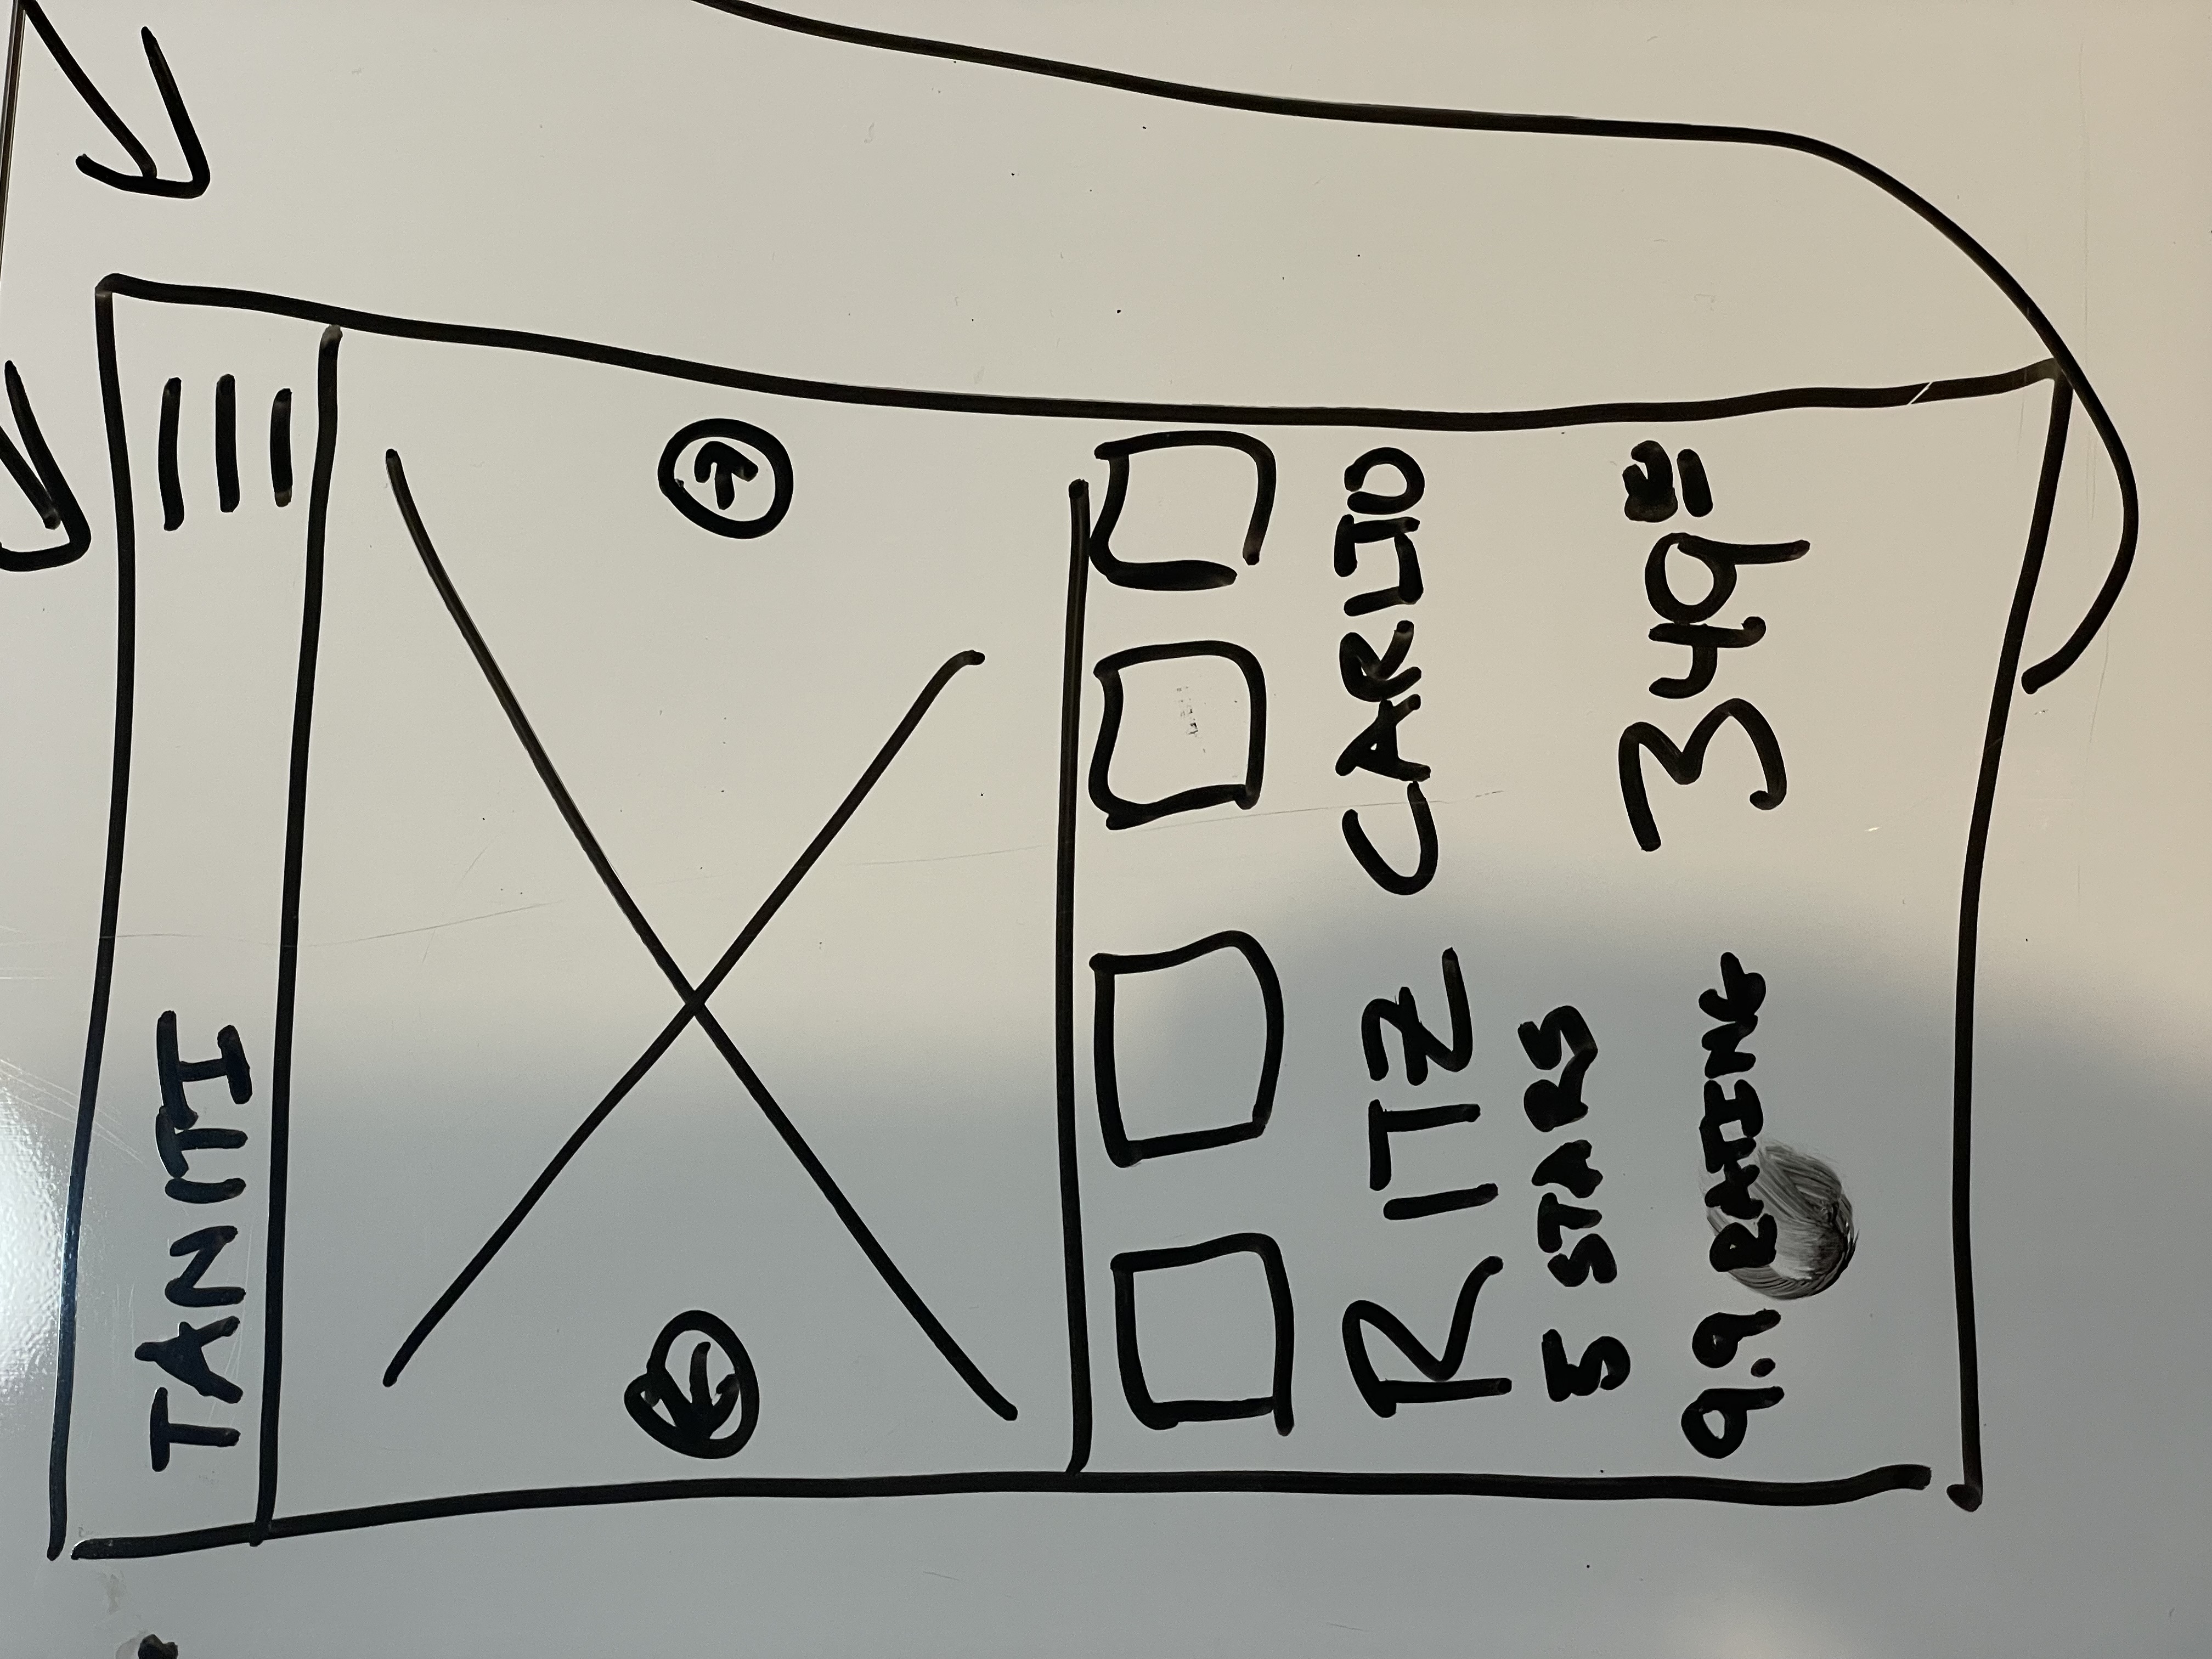 TANITI
RITZ CARLTO
5 STARS
9.9 RATING
349